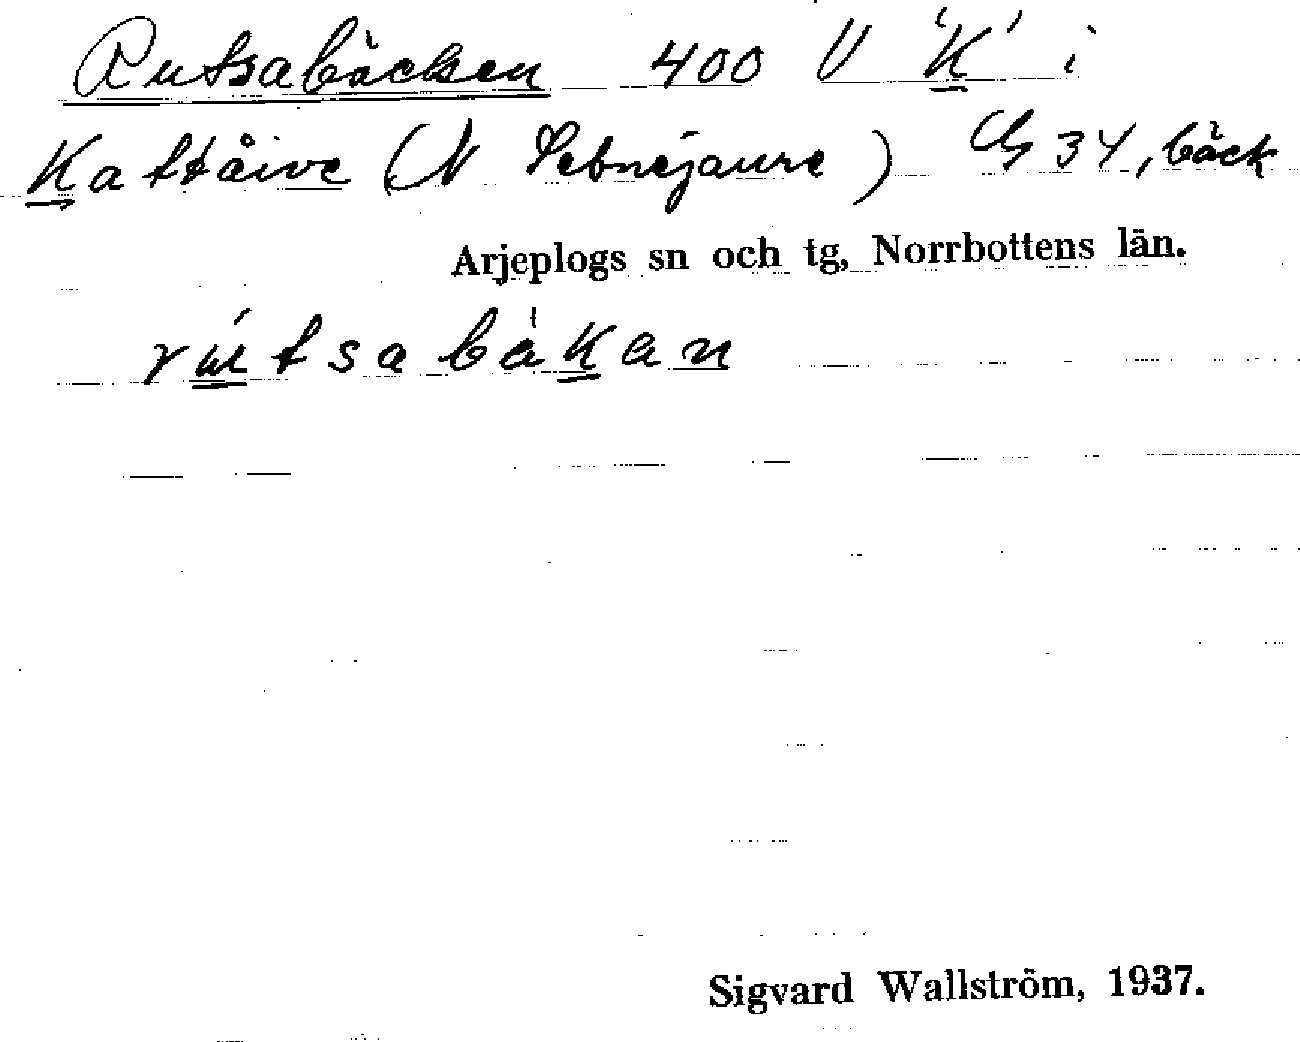 Rutsabäcken 400 V 'K' i
Kattåive (N Sebnejaure) 34, bäck
Arjeplogs sn och tg, Norrbottens län.
rútsabäkan
Sigvard Wallström, 1937.